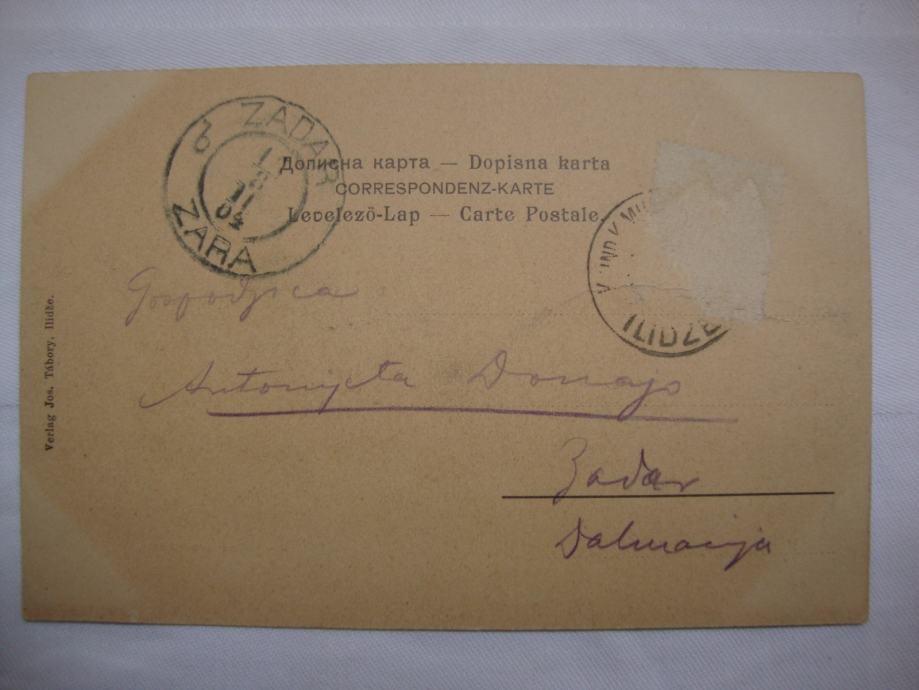 ZADAR
6
1
8
11
04
ZARA
Дописна карта — Dopisna karta
CORRESPONDENZ-KARTE
Levelező-Lap — Carte Postale.
ILIDŽE
Gospodjica
Antonijeta Donajo
Zadar
Dalmacija
Verlag Jos. Tábory, Ilidže.